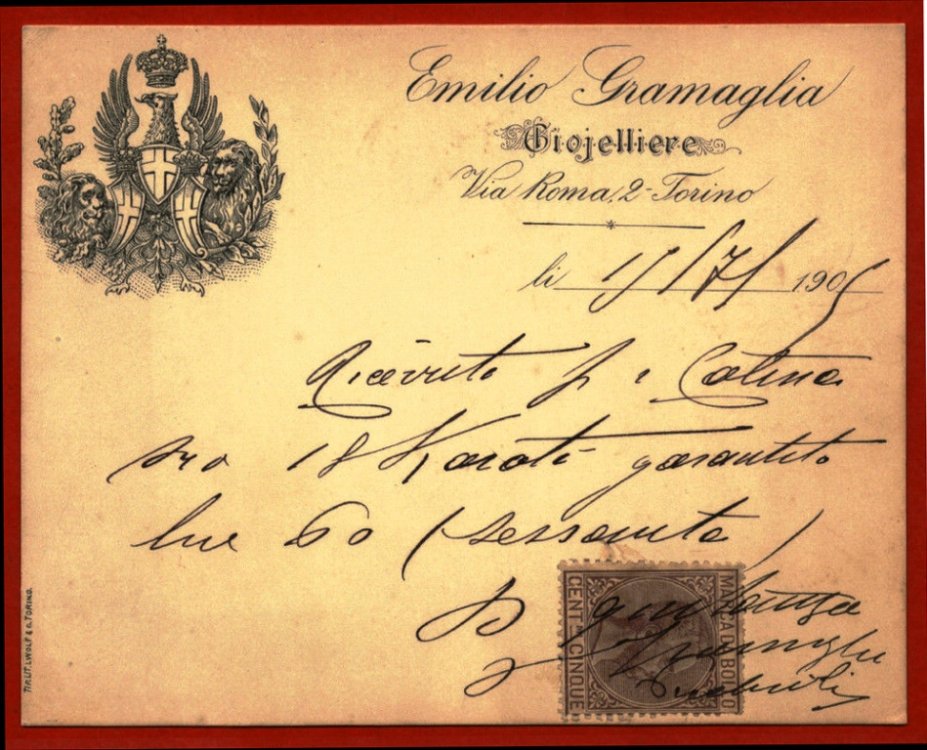 Emilio Gramaglia
Gioielliere
Via Roma, 2 - Torino
li 15/7/1905
Ricevuto p 1 Catena
oro 18 Karati garantito
lire 60 (sessanta)
MARCA DA BOLLO
CENT. MI CINQUE
TIP. LIT. J. WOLF & C. TORINO.